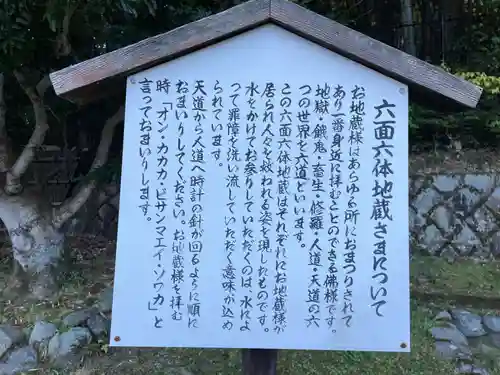 六面六体地蔵さまについて
お地蔵様はあらゆる所におまつりされて
あり一番身近に拝むとのできる佛様です。
地獄・餓鬼・畜生・修羅・人道・天道の六
つの世界を六道といいます。
この六面六体地蔵はそれぞれにお地蔵様が
居られ人々を救われる姿を現したものです。
水をかけてお参りしていただくのは、水によ
って罪障を洗い流していただく意味が込め
られています。
天道から人道へ時計の針が回るように順に
おまいりしてください。お地蔵様を拝む
時「オン・カカカ・ビサンマエイ・ソワカ」と
言っておまいりします。